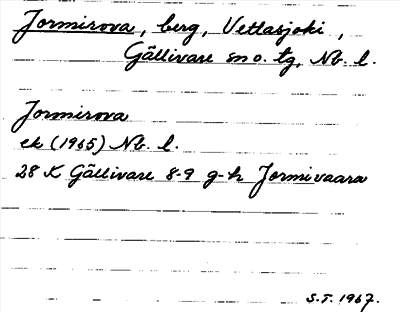 Jormirova, berg, Vettasjoki,
Gällivare sn o. tg, Nb. l.
Jormirova
ek (1965) Nb. l.
28 K Gällivare 8-9 g-h Jormivaara
S.T. 1967.